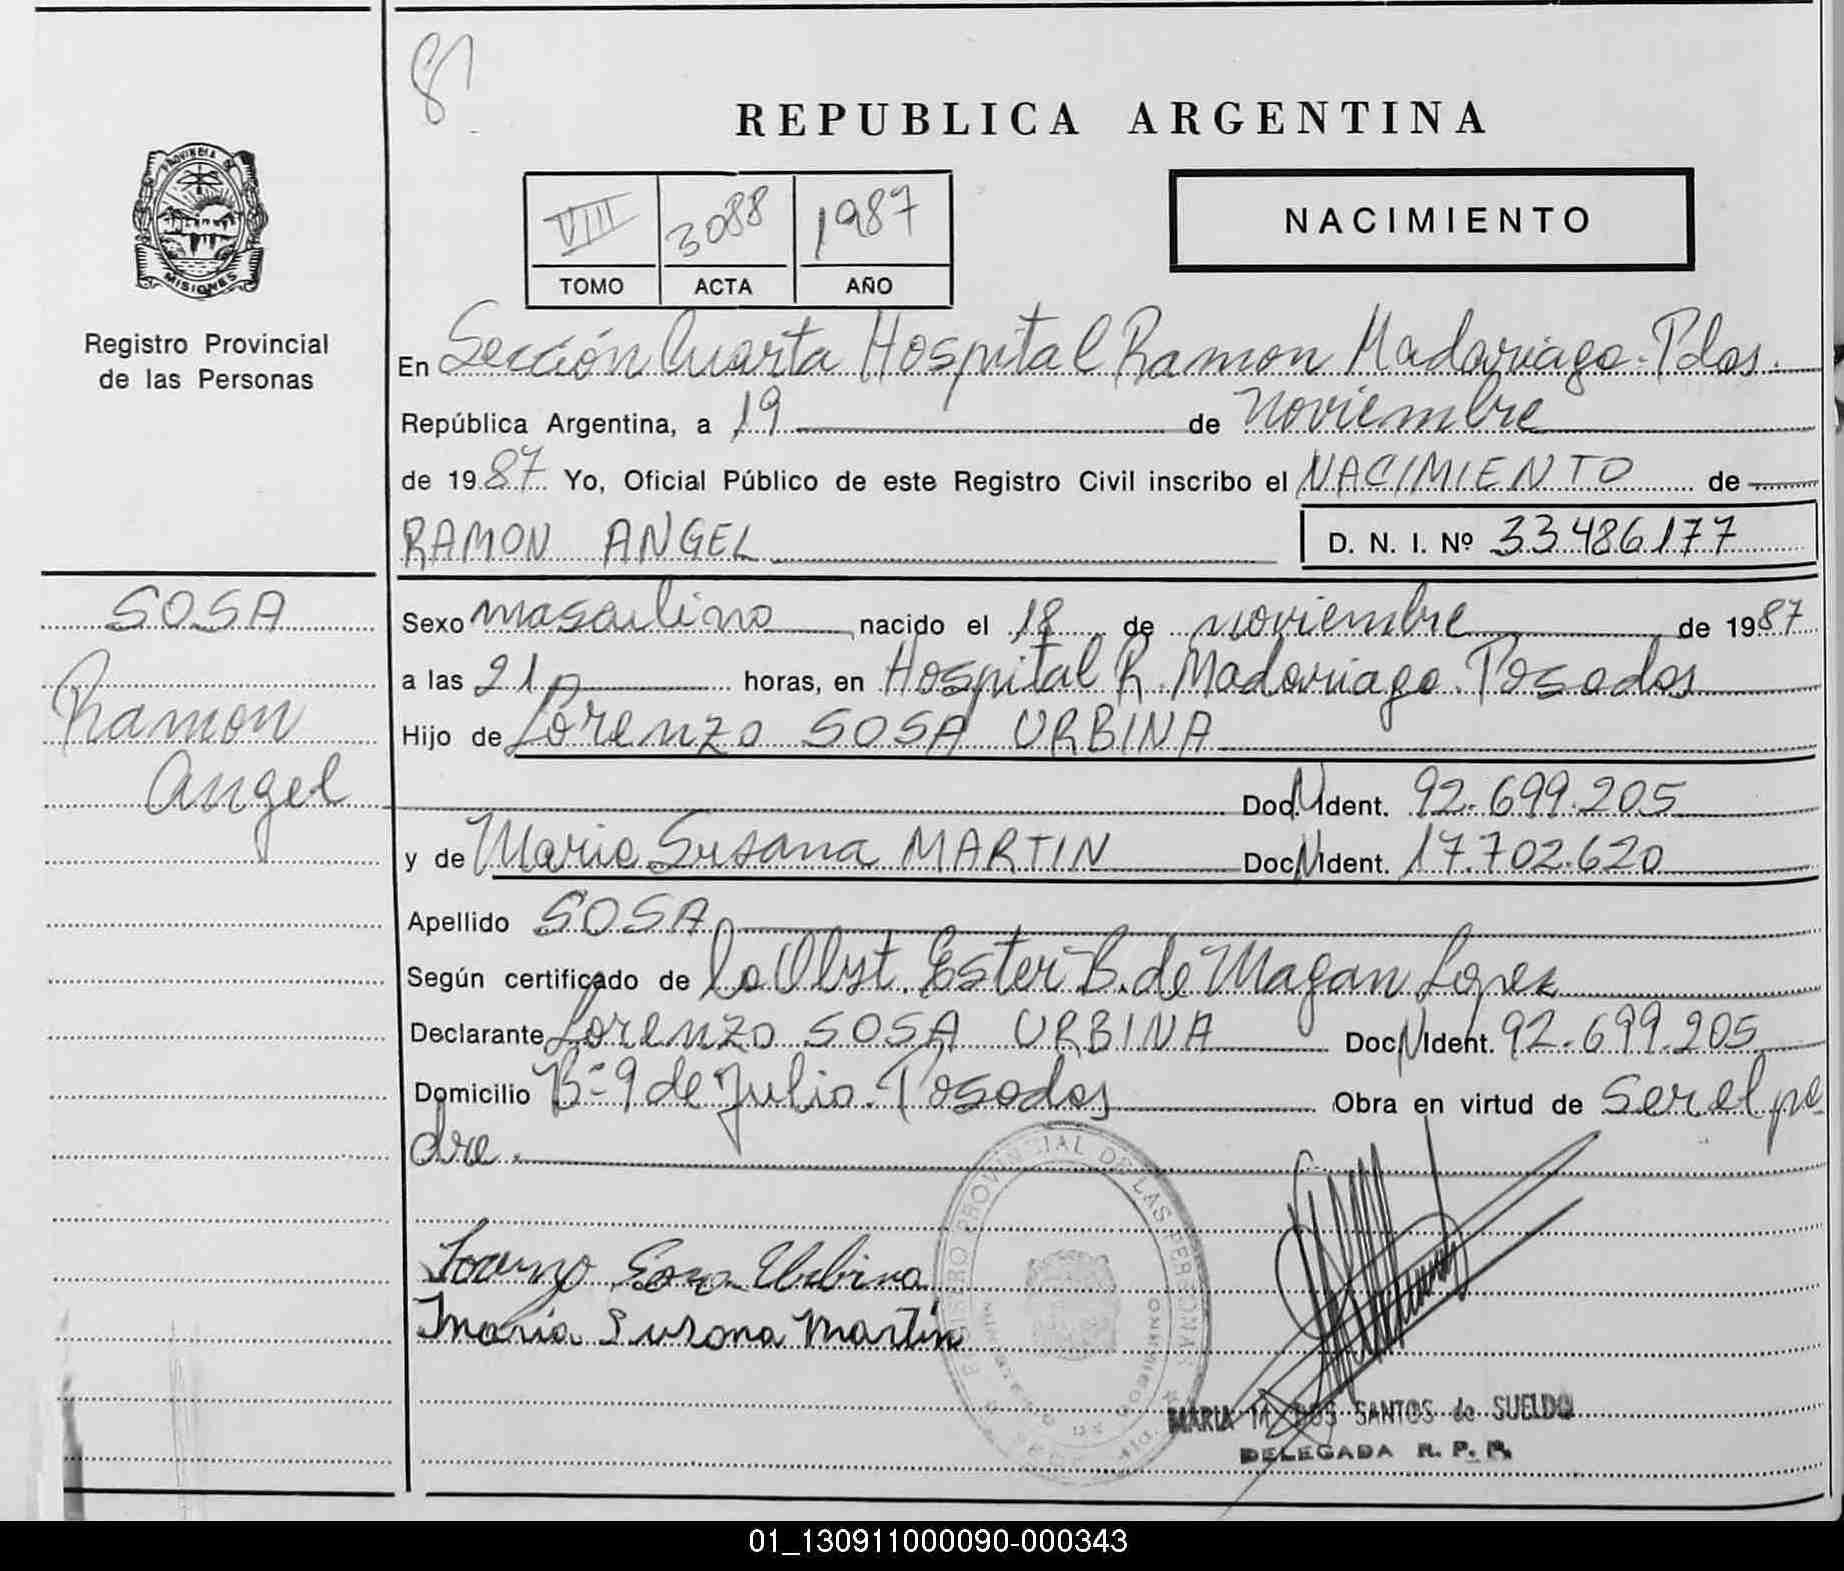 87
REPUBLICA ARGENTINA
PROVINCIA DE
MISIONES
Registro Provincial
de las Personas
VIII 3088 1987
TOMO ACTA AÑO
NACIMIENTO
En Sección Cuarta Hospital Ramon Madariaga-Pdas.
República Argentina, a 19 de Noviembre
de 1987 Yo, Oficial Público de este Registro Civil inscribo el NACIMIENTO de
RAMON ANGEL D. N. I. Nº 33.486.177
SOSA
Ramon
Angel
Sexo masculino nacido el 18 de noviembre de 1987
a las 21 horas, en Hospital R. Madariaga. Posadas
Hijo de Lorenzo SOSA URBINA
Doc. N Ident. 92.699.205
y de Maria Susana MARTIN Doc. N Ident. 17.702.620
Apellido SOSA
Según certificado de la Obst. Ester B. de Magan Lopez
Declarante Lorenzo SOSA URBINA Doc. N Ident. 92.699.205
Domicilio Bº 9 de Julio. Posadas Obra en virtud de ser el pa
dre.
Sosa Urbina
Maria Susana Martin
REGISTRO PROVINCIAL DE LAS PERSONAS
MARIA M. DOS SANTOS de SUELDO
DELEGADA R. P. P.
01_130911000090-000343